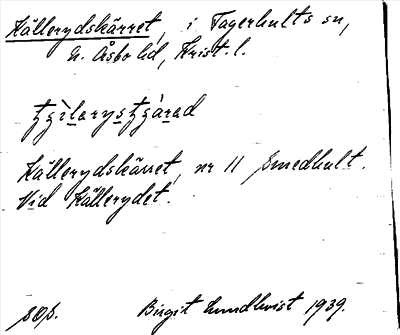 Källerydskärret, i Fagerhults sn,
N. Åsbo hd, Krist. l.
Källerydskärret, nr 11 Smedhult.
Vid Källerydet.
Birgit Lundkvist 1939.